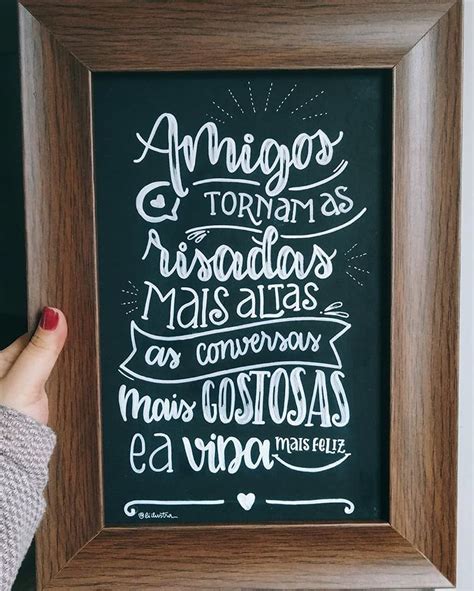 Amigos
TORNAM AS
risadas
MAIS ALTAS
as conversas
mais GOSTOSAS
e a VIDA MAIS FELIZ